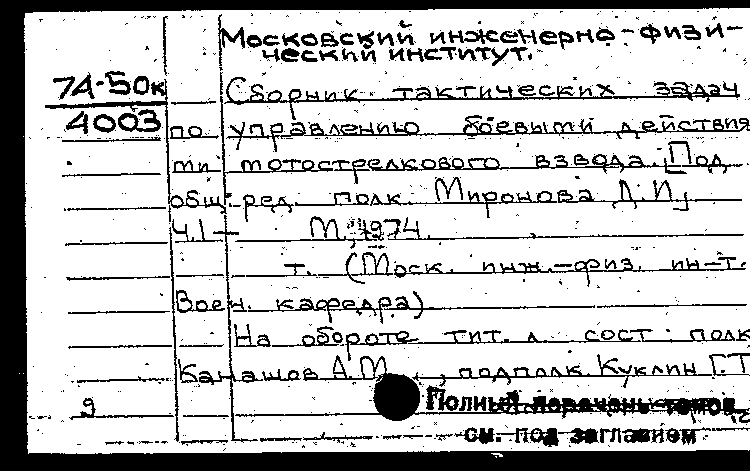 Московский инженерно-физи-
ческий институт.
74-50к
4003
Сборник тактических задач
по управлению боевыми действия
ми мотострелкового взвода. [Под
общ. ред. полк. Миронова Д.И.]
Ч.1— М., 1974.
т. (Моск. инж.-физ. ин-т.
Воен. кафедра)
На обороте тит. л. сост.: полк
Канашов А.М., подполк Куклин Г.Т
9
Полный перечень томов
см. под заглавием